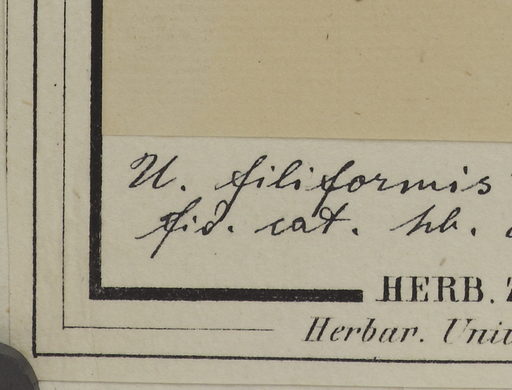 U. filiformis
fid. cat. hb.
HERB.
Herbar.